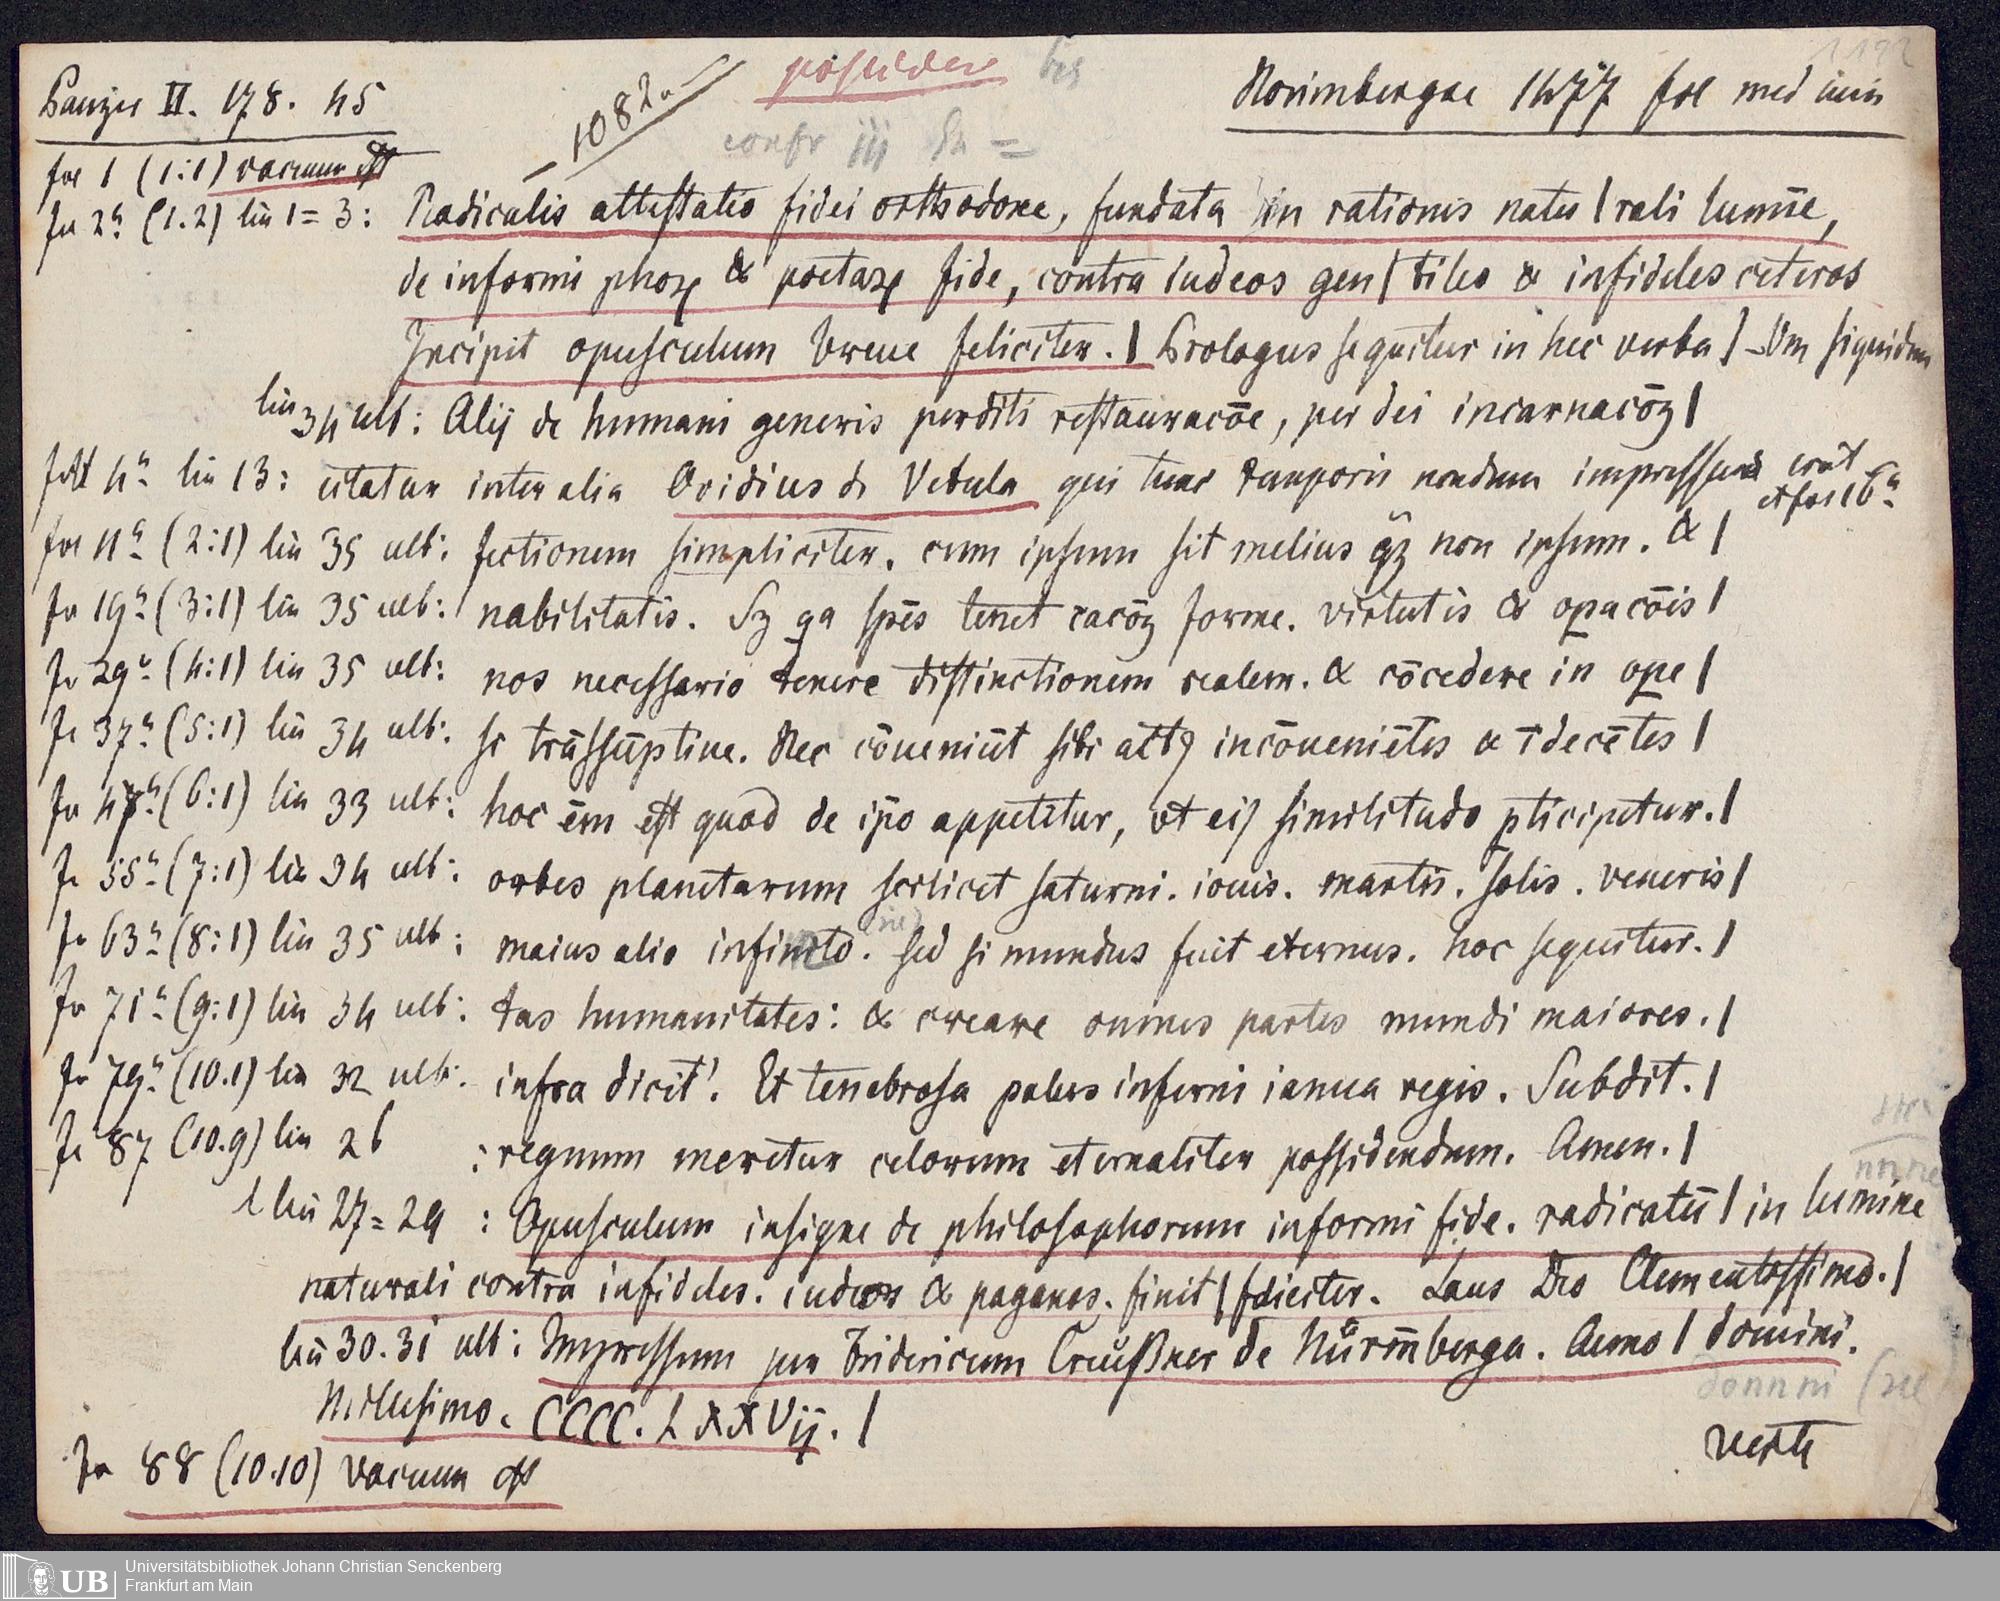 Panzer II. 178. 45
1082a
possidere bis
Norimbergae 1477 fol med min
confr iij
fol 1 (1:1) vacuum est
fo 2a (1.2) lin 1=3: Radicalis attestatio fidei orthodoxe, fundata in rationis natu | rali lumīe,
de informi phoꝝ & poetaꝝ fide, contra iudeos gen | tiles & infideles ceteros
Incipit opusculum breue feliciter. | Prologus sequitur in hec verba | Um siquidem
lin 34 ult: Alij de humani generis perditi restauracōe, per dei incarnacōꝫ |
4a lin 13: citatur inter alia Ovidius de Vetula qui tunc temporis nondum impressus erat
et fol 16a
fol 11a (2:1) lin 35 ult: fectionem simpliciter. cum ipsum sit melius qꝫ non ipsum. & |
fo 19a (3:1) lin 35 ult: nabilitatis. Sꝫ qa spēs tenet racōꝫ forme. virtutis & opacōis |
fo 29a (4:1) lin 35 ult: nos necessario tenere distinctionem realem. & cōcedere in ope |
fo 37a (5:1) lin 34 ult: se trāssūptiue. Nec cōueniūt sibi incōueniētes & īdecētes |
fo 47a (6:1) lin 33 ult: hoc ēm est quod de ipō appetitur, vt eiꝰ similitudo pticipetur. |
fo 55a (7:1) lin 34 ult: orbes planetarum scilicet saturni. iouis. martis. solis. veneris |
fo 63a (8:1) lin 35 ult: maius alio infinito. sed si mundus fuit eternus. hoc sequitur. |
fo 71a (9:1) lin 34 ult: tas humanitates: & creare omnes partes mundi maiores. |
fo 79a (10.1) lin 32 ult: infra dicit'. Et tenebrosa palus inferni ianua regis. Subdit. |
fo 87 (10.9) lin 26 : regnum meretur celorum eternaliter possidendum. Amen. |
lin 27=29 : Opusculum insigne de philosophorum informi fide. radicatū | in lumine
naturali contra infideles. iudeos & paganos. finit | feliciter. Laus Deo Clementissimo. |
lin 30.31 ult: Impressum per Fridericum Creüßner de Nürm̄berga. Anno | domini.
Millesimo. CCCC. LXXVij. |
domini
verte
fo 88 (10.10) vacuum est
UB
Universitätsbibliothek Johann Christian Senckenberg
Frankfurt am Main